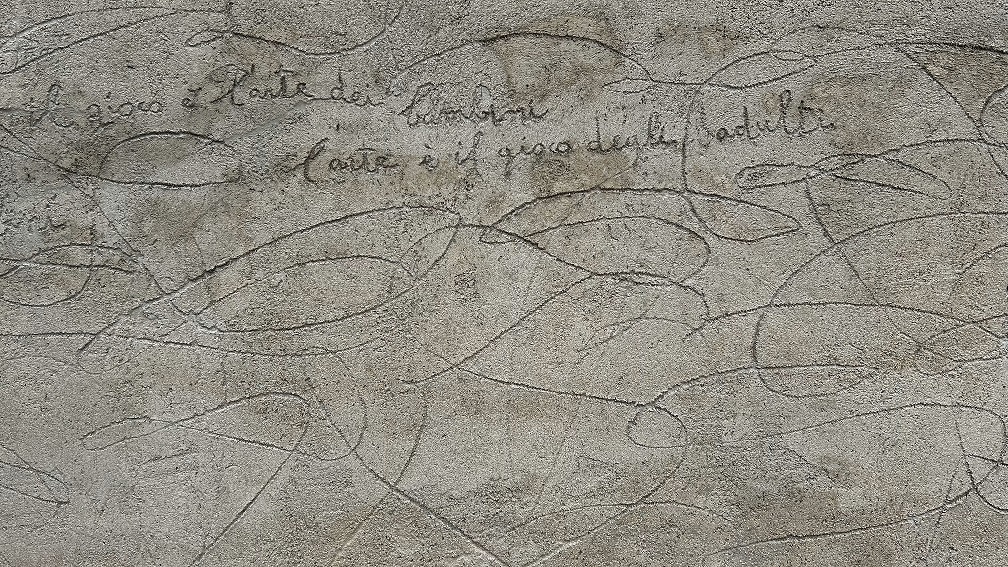 il gioco è l'arte dei bambini
l'arte è il gioco degli adulti